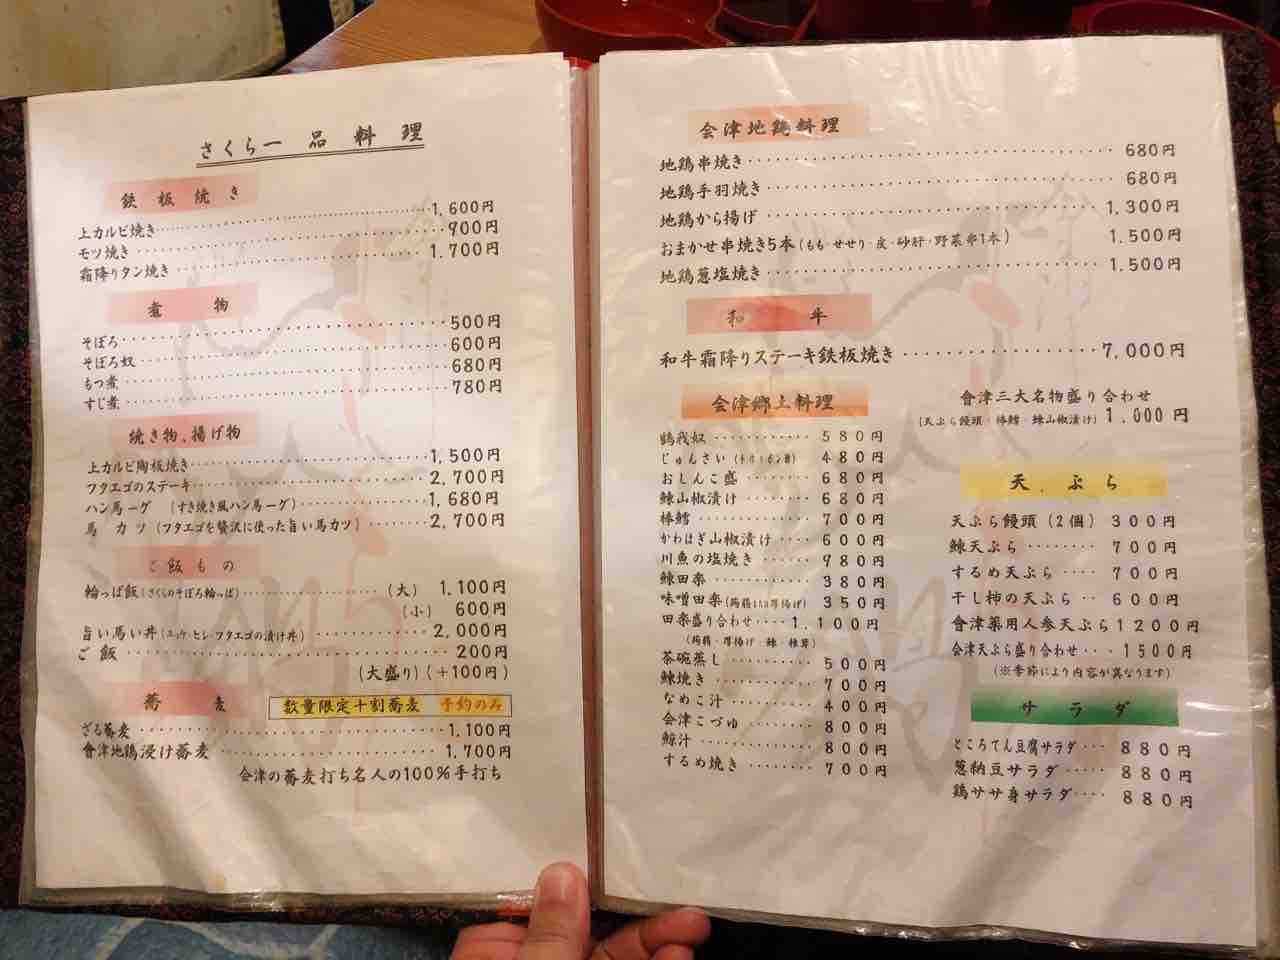 さくら一品料理
鉄板焼き
上カルビ焼き 1,600円
モツ焼き 900円
霜降りタン焼き 1,700円
煮物
そぼろ 500円
そぼろ奴 600円
もつ煮 680円
すじ煮 780円
焼き物、揚げ物
上カルビ陶板焼き 1,500円
フタエゴのステーキ 2,700円
ハン馬ーグ (すき焼き風ハン馬ーグ) 1,680円
馬カツ (フタエゴを贅沢に使った旨い馬カツ) 2,700円
ご飯もの
輪っぱ飯(さくらのそぼろ輪っぱ) (大) 1,100円
(小) 600円
旨い馬い丼(ユッケ・ヒレ・フタエゴの漬け丼) 2,000円
ご飯 200円
(大盛り)(+100円)
蕎麦 数量限定十割蕎麦 予約のみ
ざる蕎麦 1,100円
會津地鶏浸け蕎麦 1,700円
会津の蕎麦打ち名人の100%手打ち
会津地鶏料理
地鶏串焼き 680円
地鶏手羽焼き 680円
地鶏から揚げ 1,300円
おまかせ串焼き5本(もも・せせり・皮・砂肝・野菜串1本) 1,500円
地鶏葱塩焼き 1,500円
和牛
和牛霜降りステーキ鉄板焼き 7,000円
会津郷土料理
鶴我奴 580円
じゅんさい 480円
おしんこ盛 680円
鰊山椒漬け 680円
棒鱈 700円
かわはぎ山椒漬け 600円
川魚の塩焼き 980円
鰊田楽 380円
味噌田楽(蒟蒻または厚揚げ) 350円
田楽盛り合わせ 1,100円
(蒟蒻・厚揚げ・鰊・椎茸)
茶碗蒸し 500円
鰊焼き 700円
なめこ汁 400円
会津こづゆ 800円
鯨汁 800円
するめ焼き 700円
會津三大名物盛り合わせ
(天ぷら饅頭・棒鱈・鰊山椒漬け) 1,000円
天ぷら
天ぷら饅頭(2個) 300円
鰊天ぷら 700円
するめ天ぷら 700円
干し柿の天ぷら 600円
會津薬用人参天ぷら1200円
会津天ぷら盛り合わせ 1500円
(※季節により内容が異なります)
サラダ
ところてん豆腐サラダ 880円
葱納豆サラダ 880円
鶏ササ身サラダ 880円